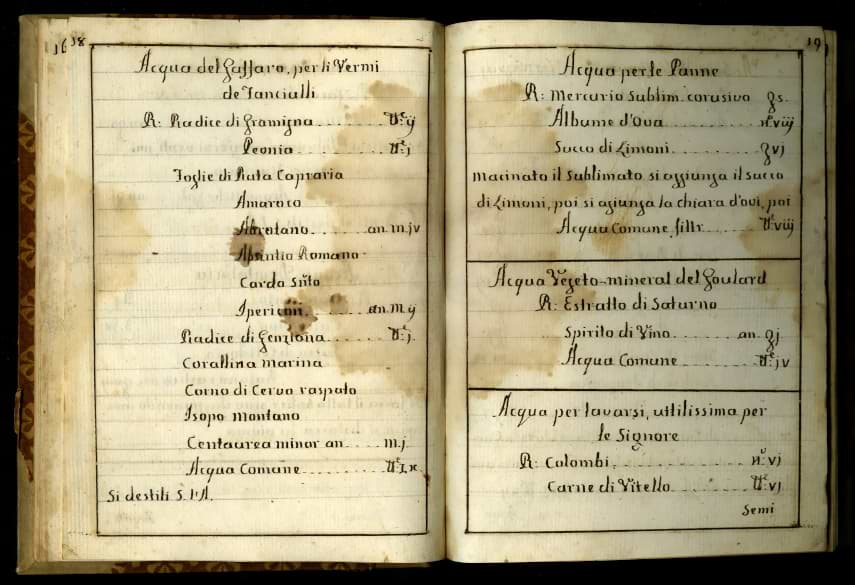 16 18
Acqua del Gaffaro, per li Vermi
de Fanciulli
R: Radice di Gramigna ij
Peonia j
Foglie di Ruta Capraria
Amaroco
Abrotano an. m. jv
Absintio Romano
Cardo Snto
Ipericon an. m. ij
Radice di Genziana j.
Corallina marina
Corno di Cervo raspato
Isopo montano
Centaurea minor an m. j
Acqua Comune ix
Si destili S. l'A.
19
Acqua per le Panne
R: Mercurio Sublim. corusivo s.
Albume d'Ova n.º viij
Succo di Limoni vj
macinato il Sublimato si aggiunga il succo
di Limoni, poi si agiunga la chiara d'ovi, poi
Acqua Comune filtr. viij
Acqua Vegeto-mineral del Goulard
R: Estratto di Saturno
Spirito di Vino an. j
Acqua Comune jv
Acqua per lavarsi, uttilissima per
le Signore
R: Colombi n.º vj
Carne di Vitello vj
Semi